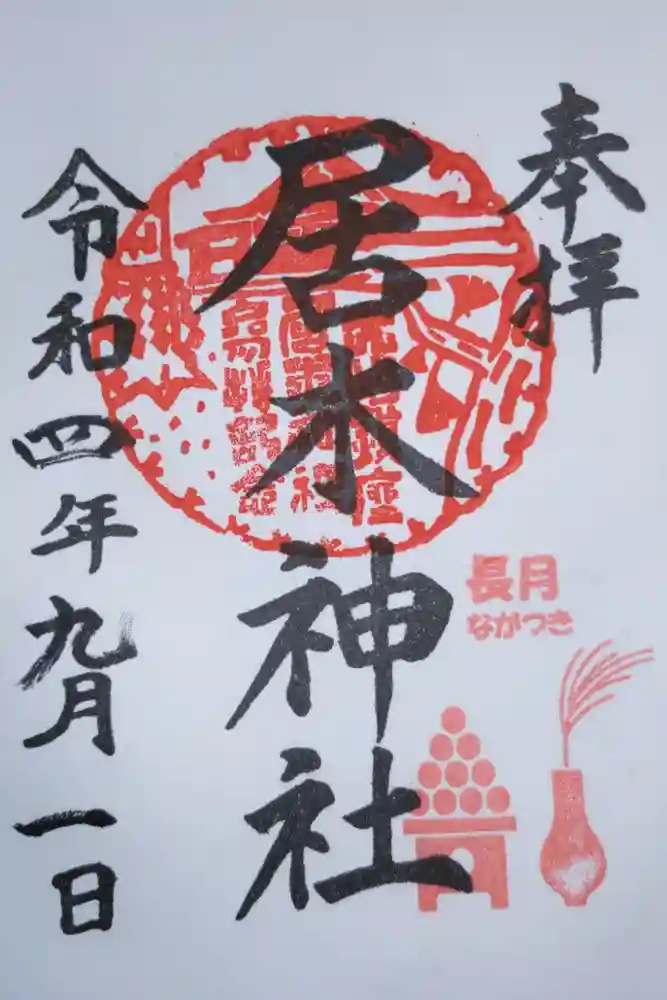 奉拝
居木神社
長月
ながつき
令和四年九月一日